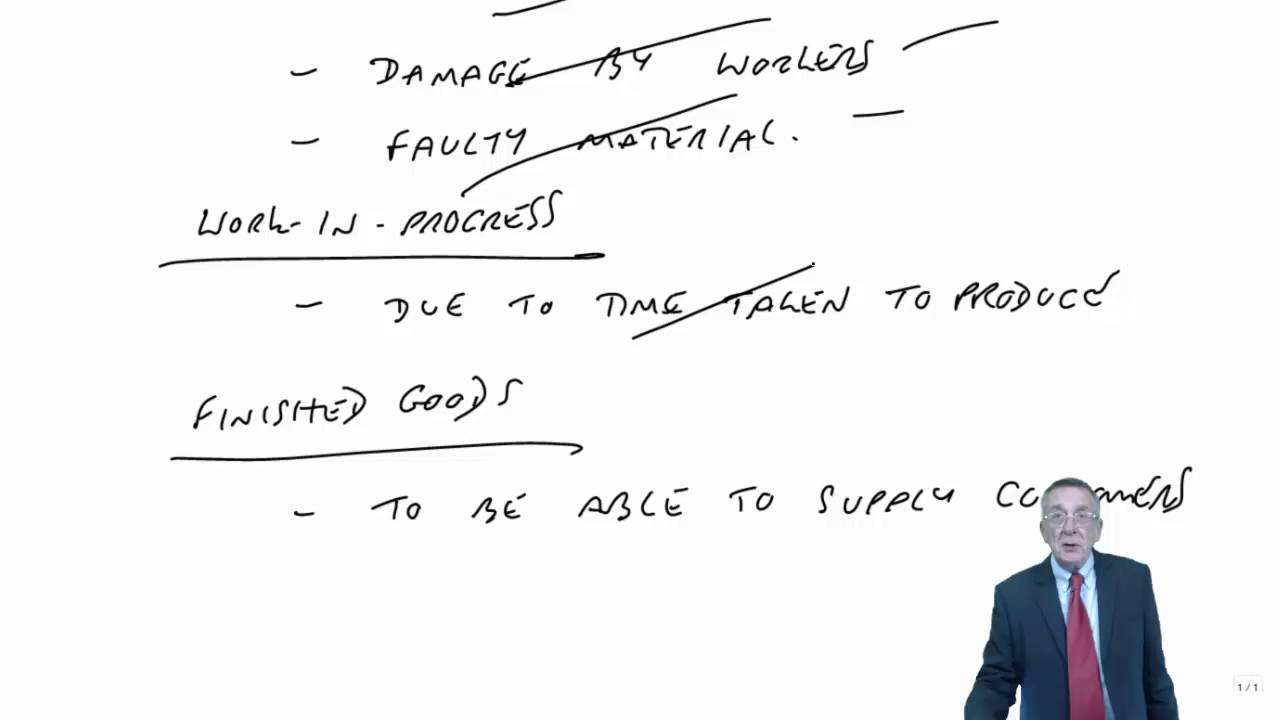 - DAMAGE BY WORKERS
- FAULTY MATERIAL.
WORK-IN-PROGRESS
- DUE TO TIME TAKEN TO PRODUCE
FINISHED GOODS
- TO BE ABLE TO SUPPLY
1/1